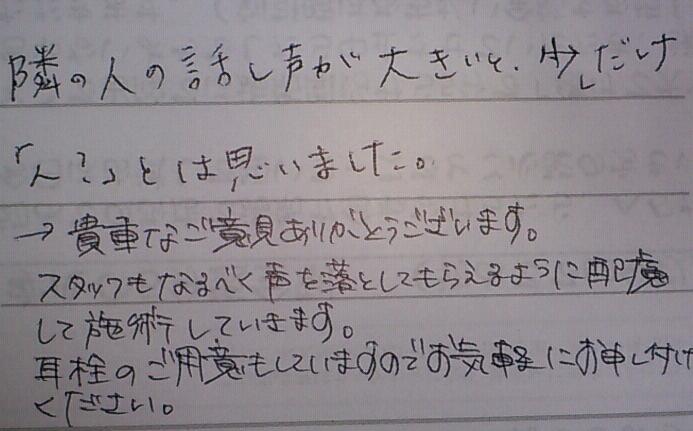 隣の人の話し声が大きいと、少しだけ
「ん？」とは思いました。
→貴重なご意見ありがとうございます。
スタッフもなるべく声を落としてもらえるように配慮
して施術していきます。
耳栓のご用意もしていますのでお気軽にお申し付け
ください。